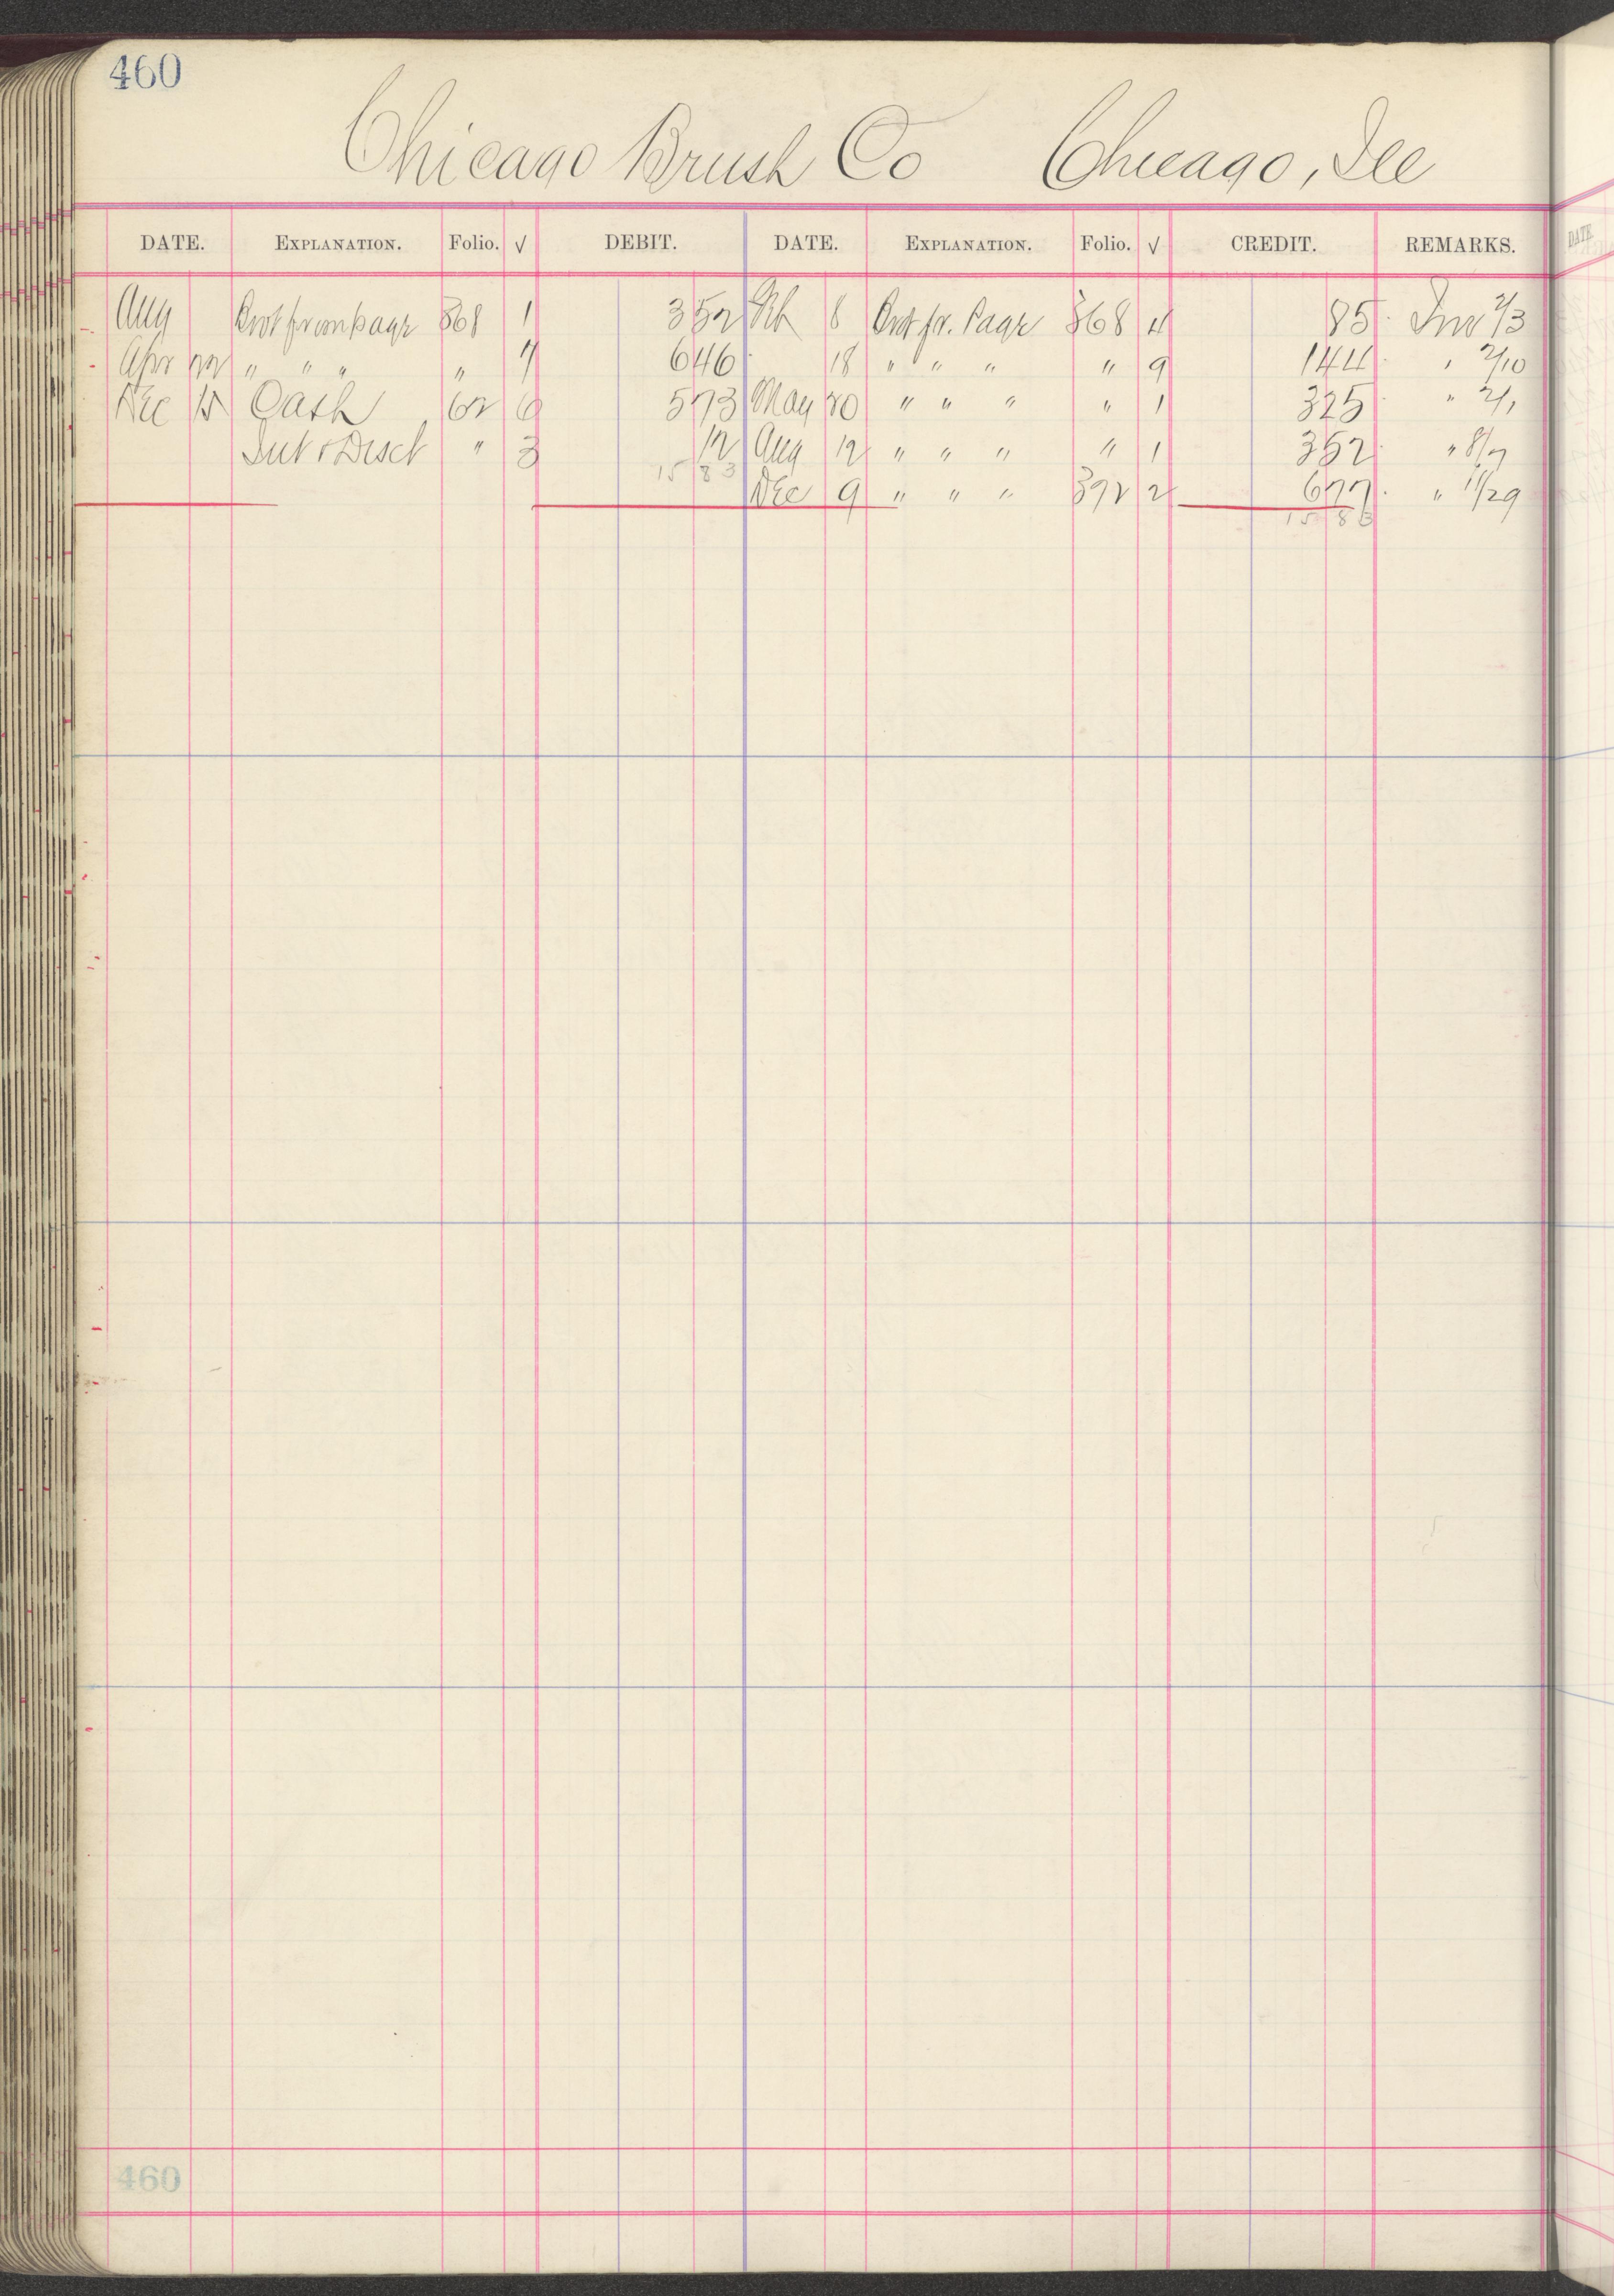 460
Chicago Brush Co Chicago, Ill
DATE. EXPLANATION. Folio. √ DEBIT. DATE. EXPLANATION. Folio. √ CREDIT. REMARKS.
Aug Brot from page 368 1 3 52 Feb 8 Brot fr. Page 368 4 85 Inv 2/3
Apr 22 " " " " 7 6 46 18 " " " " 9 1 44 " 2/10
Dec 15 Cash 62 6 5 73 May 20 " " " " 1 3 25 " 2/1
Int & Disct " 3 12 Aug 12 " " " " 1 3 52 " 8/7
15 83
Dec 9 " " " 392 2 6 77 " 11/29
15 83
460
DATE